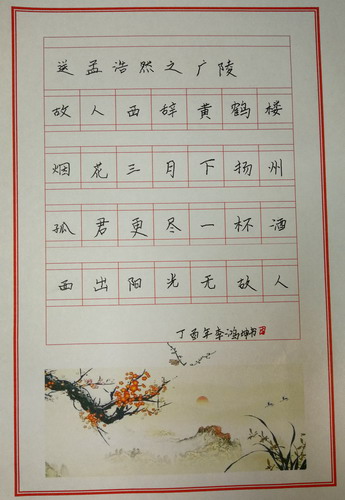 送孟浩然之广陵
故人西辞黄鹤楼
烟花三月下扬州
孤君更尽一杯酒
西出阳光无故人
丁酉年李鸿坤书